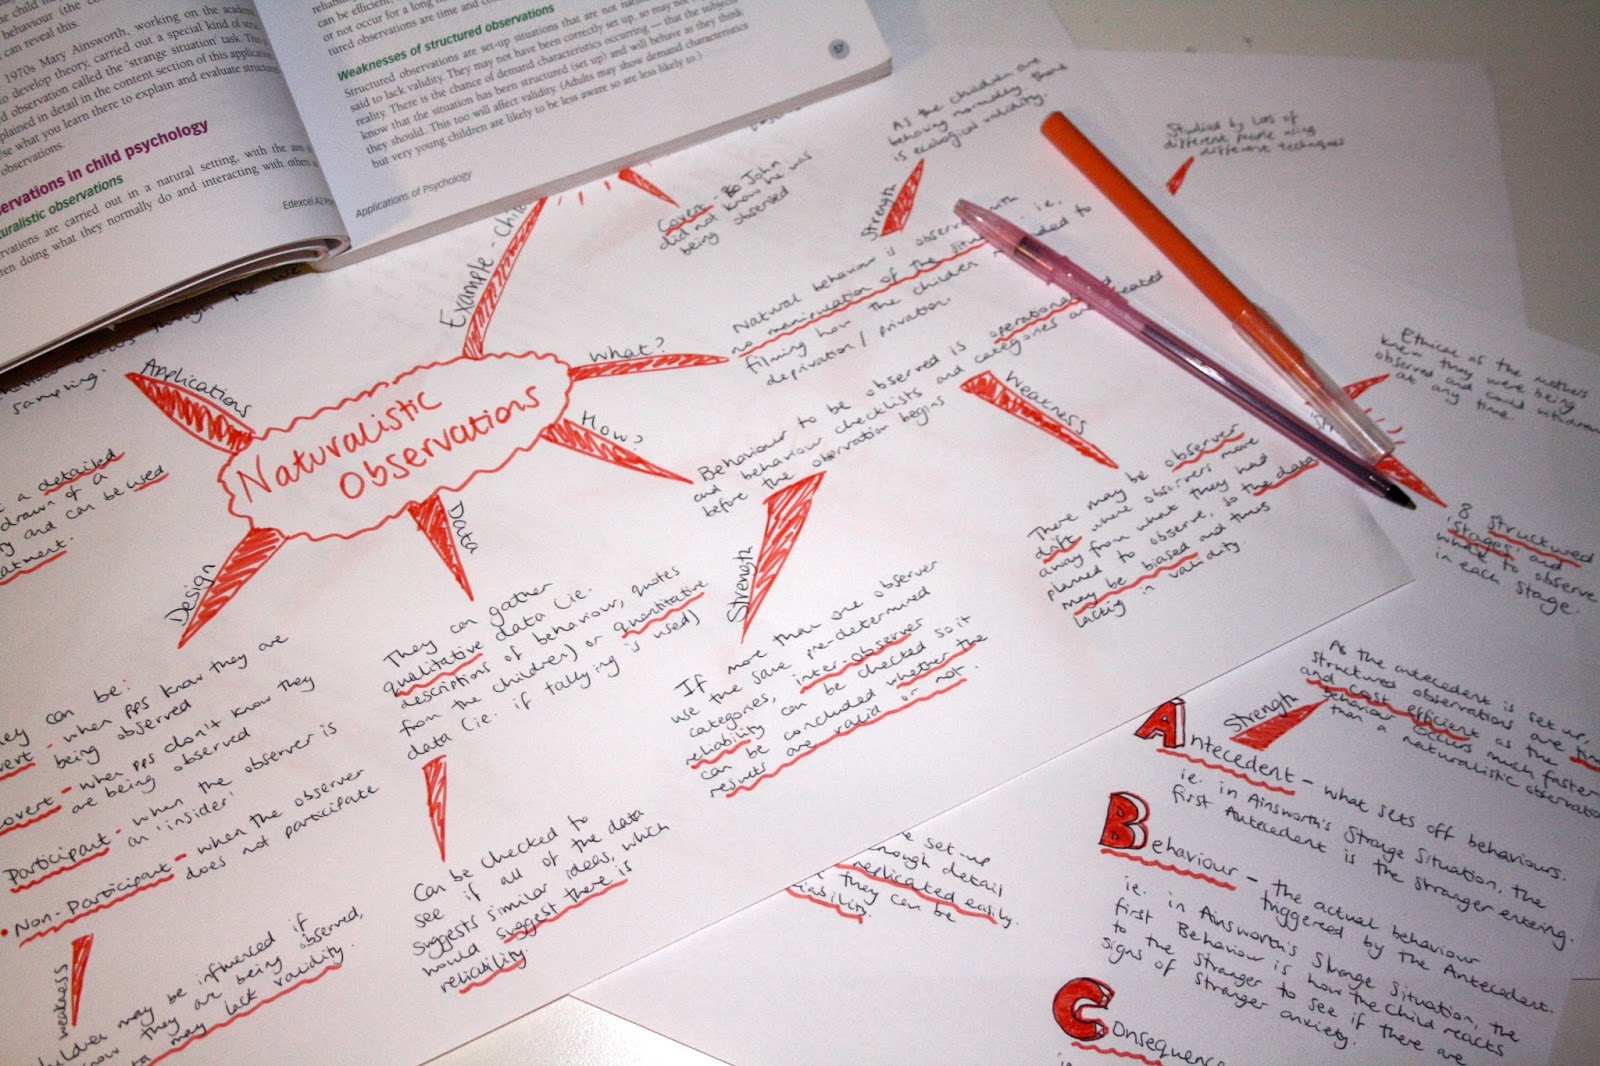 the child
behaviour (the
can reveal this.
1970s Mary Ainsworth, working on the
to develop theory, carried out a special kind of
observation called the 'strange situation' task. This is
plained in detail in the content section of this
what you learn there to explain and evaluate
observations.
ervations in child psychology
turalistic observations
rvations are carried out in a natural setting, with the aim
ren doing what they normally do and interacting with others
Edexcel A2
can be efficient,
or not occur for a long
tured observations are time and
Weaknesses of structured observations
Structured observations are set-up situations that are not
said to lack validity. They may not have been correctly set up, so may not
reality. There is the chance of demand characteristics occurring — that the subjects
know that the situation has been structured (set up) and will behave as they think
they should. This too will affect validity. (Adults may show demand characteristics
but very young children are likely to be less aware so are less likely to.)
Applications of Psychology
57
Naturalistic
Observations
Applications
sampling.
a detailed
drawn of a
and can be used
Example - Child
Covert - Bo John
did not know he was
being observed
What?
Natural behaviour is observed with
no manipulation of the situation i.e.
filming how the children reacted to
deprivation / privation.
Strength
As the children are
behaving normally there
is ecological validity.
How?
Behaviour to be observed is operationalised
and behaviour checklists and categories are created
before the observation begins
Weakness
There may be observer
drift where observers move
away from what they had
planned to observe, so the data
may be biased and thus
lacking in validity.
Strength
If more than one observer
use the same pre-determined
categories, inter-observer
reliability can be checked so it
can be concluded whether the
results are valid or not.
Data
They can gather
qualitative data (ie.
descriptions of behaviour, quotes
from the children) or quantitative
data (ie. if tallying is used)
Can be checked to
see if all of the data
suggests similar ideas, which
would suggest there is
reliability.
Design
They can be:
overt - when pps know they are
being observed
covert - when pps don't know they
are being observed
Participant - when the observer is
an 'insider'
• Non-Participant - when the observer
does not participate
weakness
children may be influenced if
know they are being observed,
data may lack validity.
Studied by lots of
different people using
different techniques
Ethical as the mothers
knew they were being
observed and could withdraw
at any time
8 structured
stages, and
what to observe
in each stage.
Strength
As the antecedent is set up,
structured observations are time
and cost efficient as the
behaviour occurs much faster
than a naturalistic observation
Antecedent - what sets off behaviours.
ie. in Ainsworth's Strange Situation, the
first Antecedent is the stranger entering.
Behaviour - the actual behaviour
triggered by the Antecedent.
ie. in Ainsworth's Strange Situation, the
first Behaviour is how the child reacts
to the stranger to see if there are
signs of stranger anxiety.
Consequence
set-up
enough detail
replicated easily.
they can be